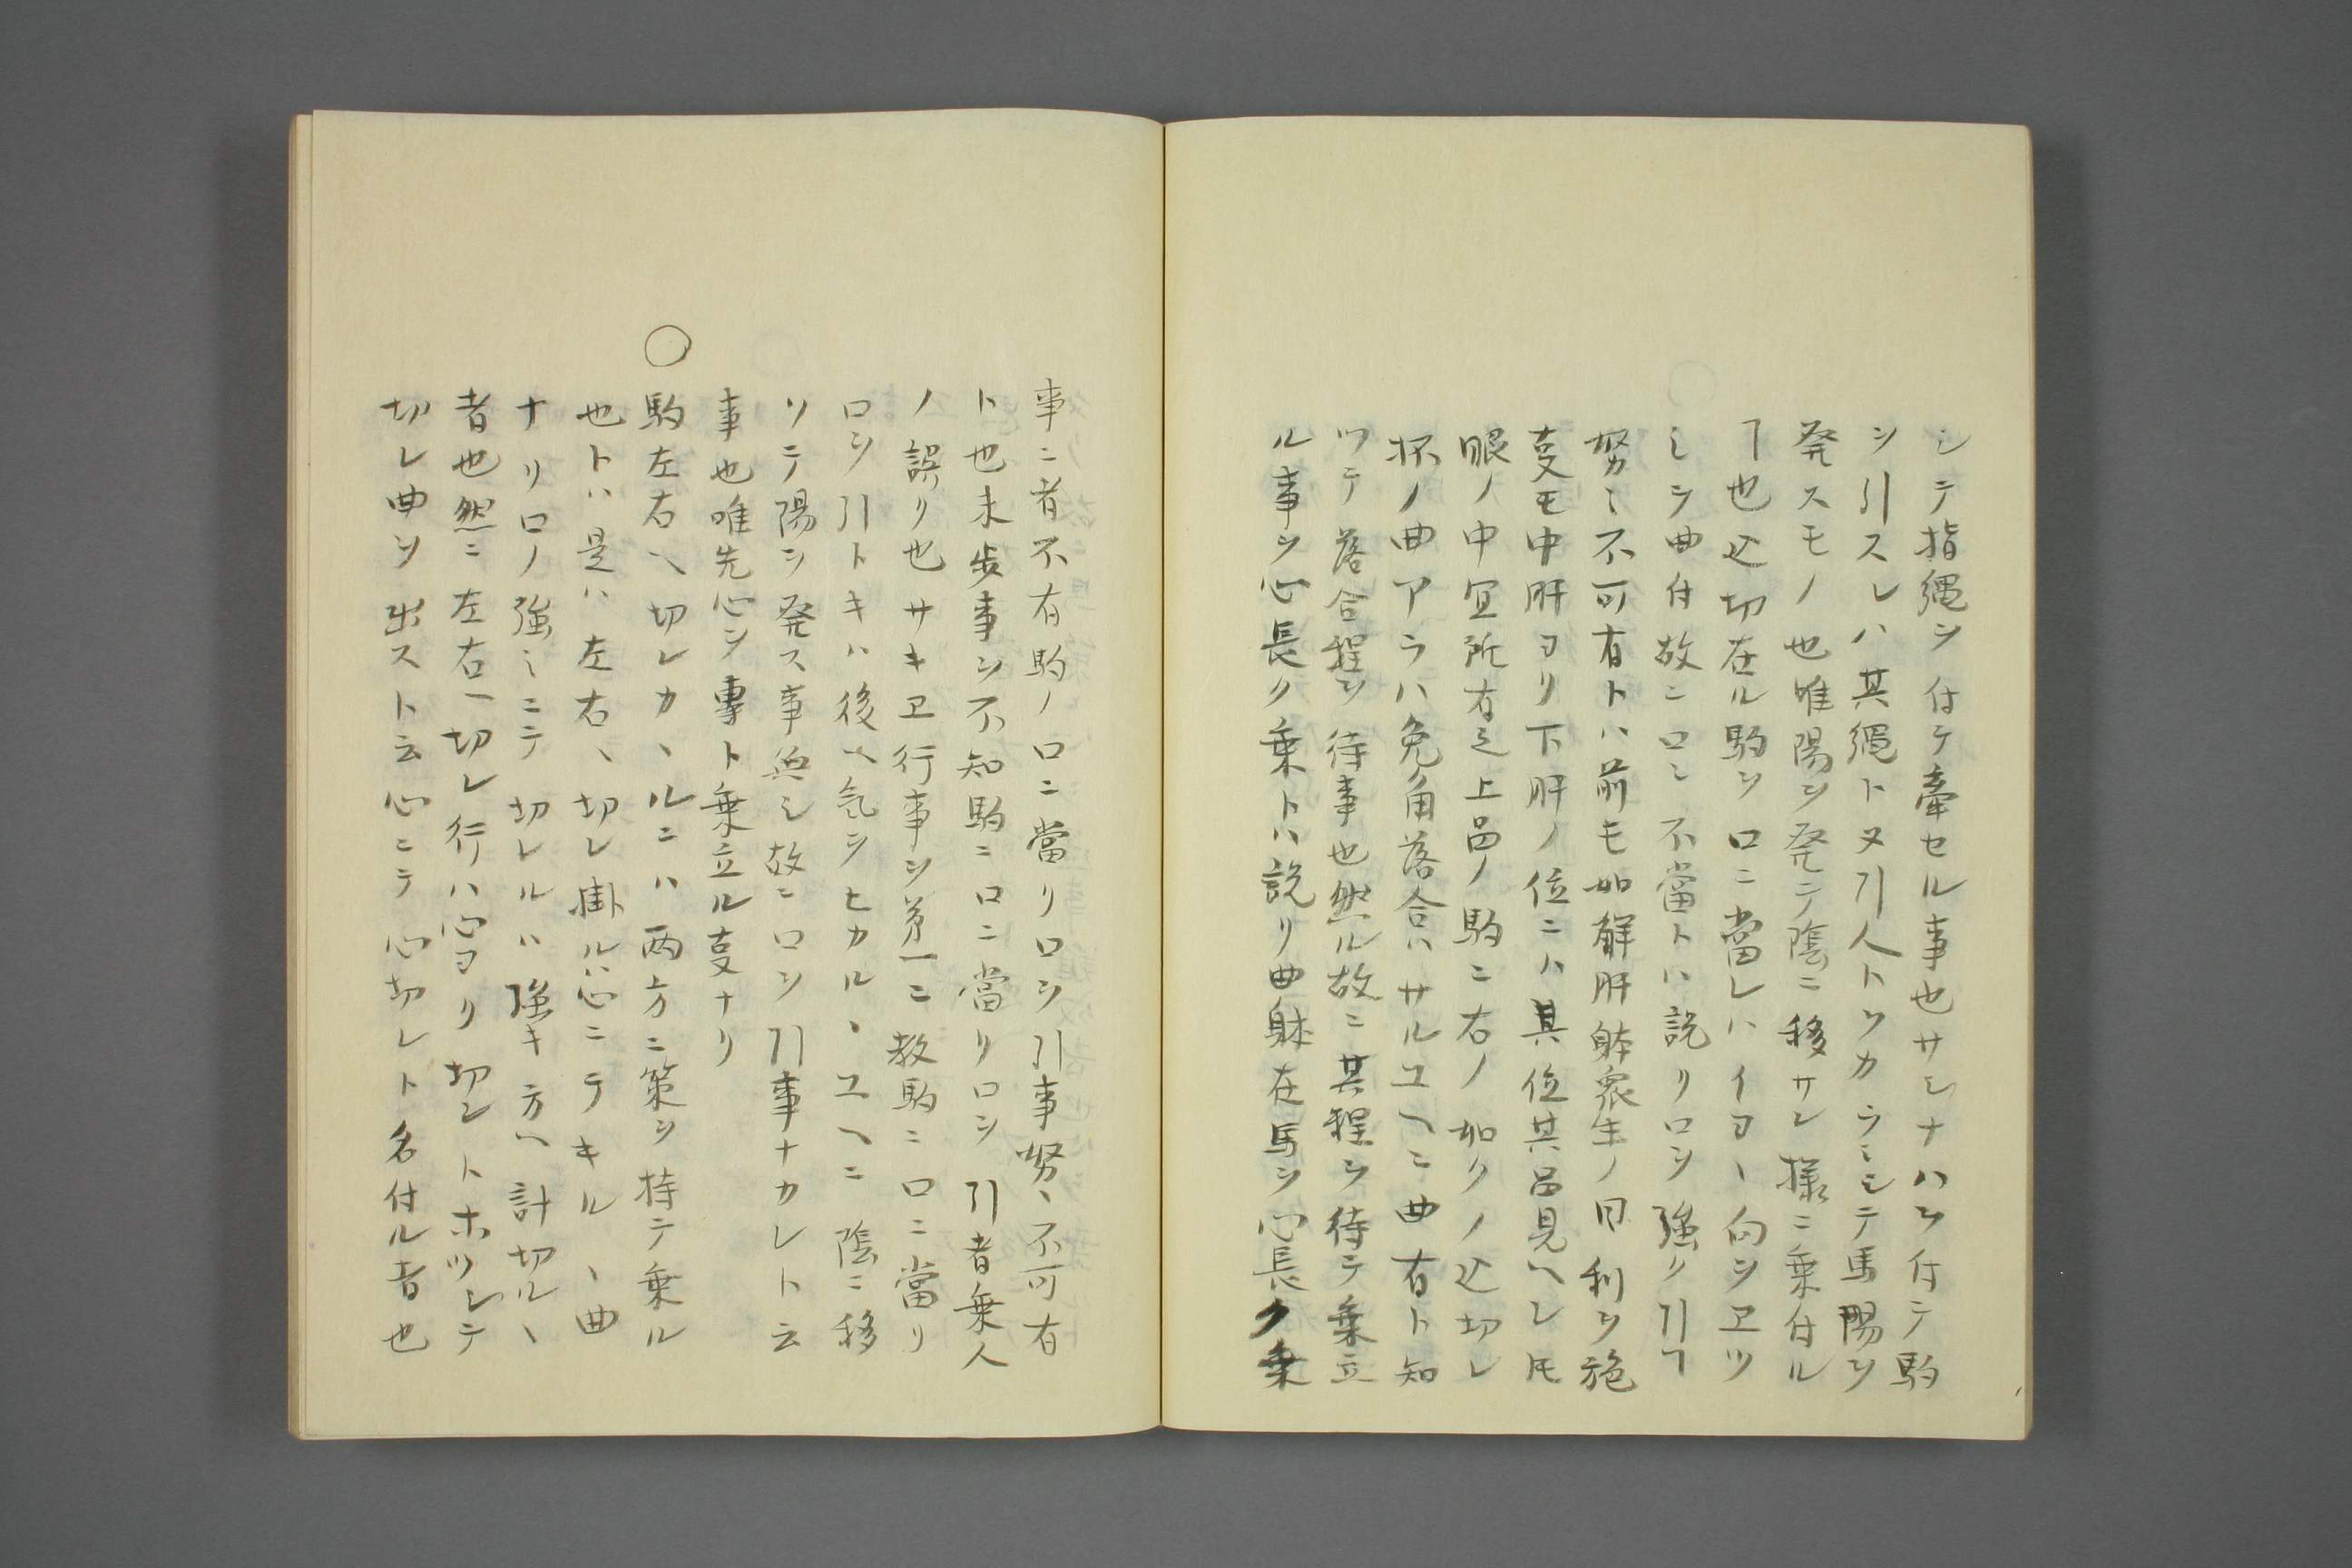 シテ指縄ヲ付テ牽セル事也サシナハヲ付テ駒
ヲ引スレハ其縄トヌ引人トツカラミシテ馬陽ヲ
発スモノ也唯陽ヲ発テ陰ニ移サレ様ニ乗付ル
ヿ也込切在ル駒ヲ口ニ當レハイヨ丶向ヲヱツ
ミヲ曲付故ニ口ニ不當トハ説リ口ヲ強ク引ヿ
努ミ不可有トハ前モ如解肝躰衆生ノ目利ヲ施
㕝モ中肝ヨリ下肝ノ位ニハ其位其品見ヘレ𪜈
眼ノ中宜所有之上品ノ駒ニ右ノ如クノ込切レ
抔ノ曲アラハ兔角落合ハサルユヘニ曲有ト知
ツテ落合程ヲ待事也然ル故ニ其程ヲ待テ乗立
ル事ヲ心長ク乗トハ説リ曲躰在馬ヲ心長ク乗
事ニ者不有駒ノ口ニ當リ口ヲ引事努丶不可有
ト也未歩事ヲ不知駒ニ口ニ當リ口ヲ引者乗人
ノ誤リ也サキヱ行事ヲ第一ニ教駒ニ口ニ當リ
口ヲ引トキハ後ヘ気ヲヒカル丶ユヘニ陰ニ移
リテ陽ヲ発ス事無シ故ニ口ヲ引事ナカレト云
事也唯先心ヲ專ト乗立ル㕝ナリ
○駒左右ヘ切レカ丶ルニハ両方ニ策ヲ持テ乗ル
也トハ是ハ左右丶切レ掛ル心ニテキル丶曲
ナリ口ノ強ミニテ切レルハ強キ方ヘ計切ル丶
者也然ニ左右ヘ切レ行ハ心ヨリ切レントホツシテ
切レ曲ヲ出スト云心ニテ心切レト名付ル者也